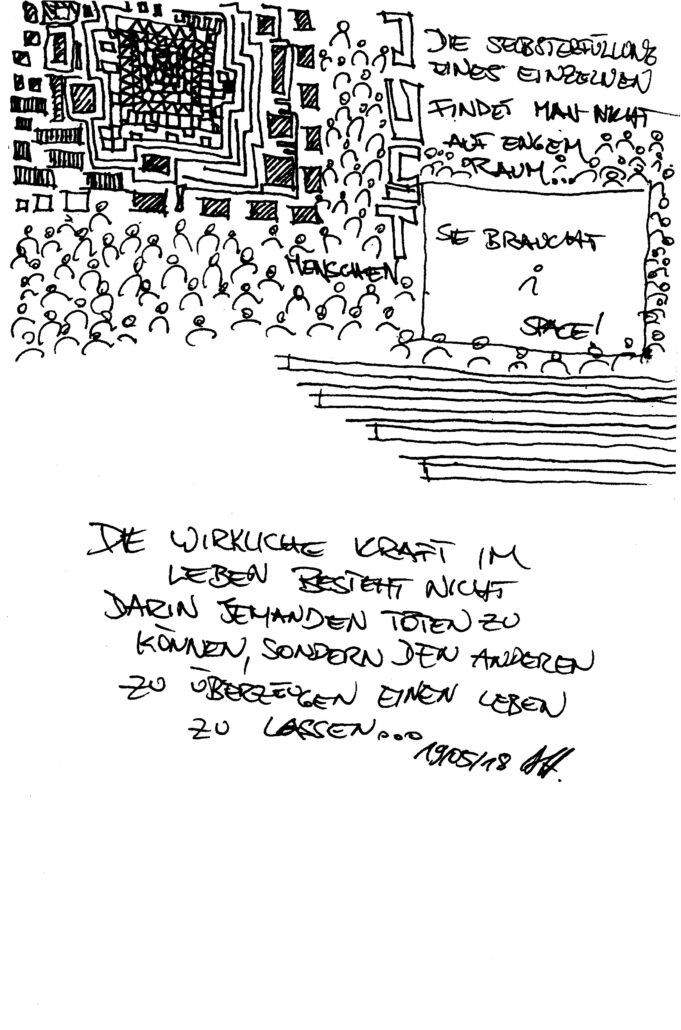 DIE SELBSTERFÜLLUNG
EINES EINZELNEN
FINDET MAN NICHT
AUF ENGEM
RAUM...
SIE BRAUCHT
i
SPACE!
MENSCHEN
DIE WIRKLICHE KRAFT IM
LEBEN BESTEHT NICHT
DARIN JEMANDEN TÖTEN ZU
KÖNNEN, SONDERN DEN ANDEREN
ZU ÜBERZEUGEN EINEN LEBEN
ZU LASSEN...
19/05/18